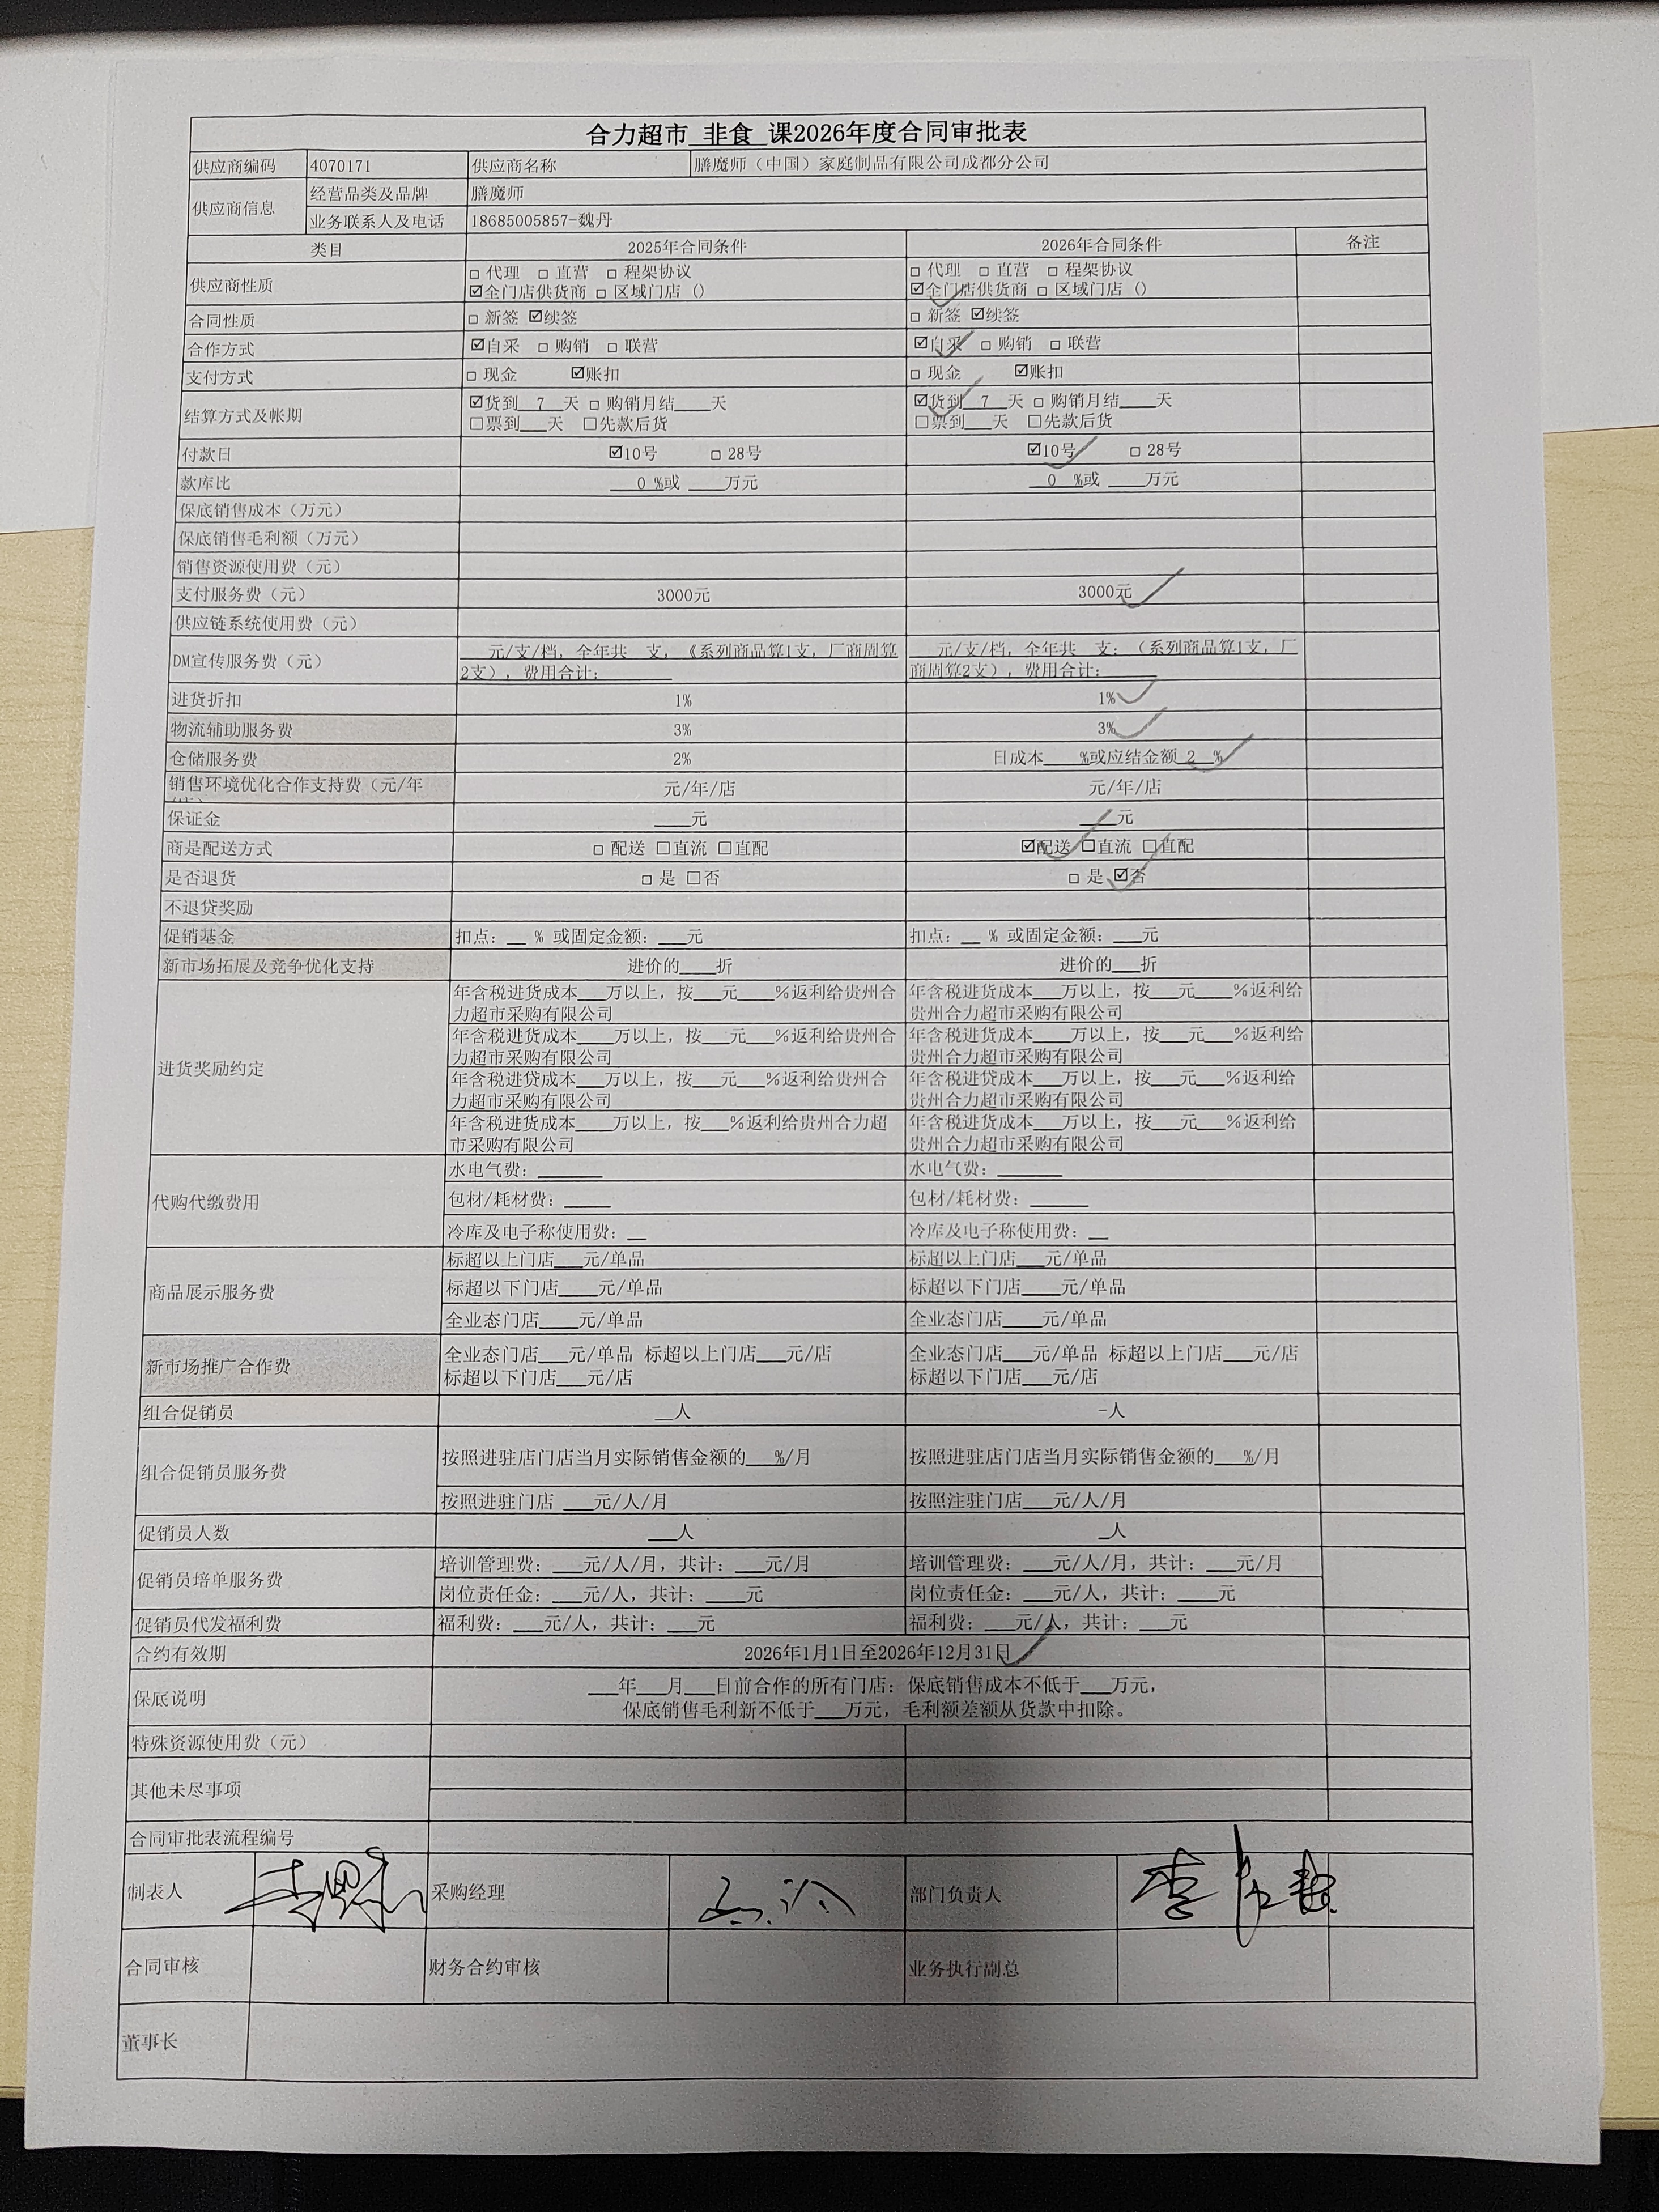 合力超市 非食 课2026年度合同审批表
供应商编码 4070171 供应商名称 膳魔师（中国）家庭制品有限公司成都分公司
供应商信息 经营品类及品牌 膳魔师
业务联系人及电话 18685005857-魏丹
类目 2025年合同条件 2026年合同条件 备注
供应商性质 □ 代理 □ 直营 □ 程架协议 □ 代理 □ 直营 □ 程架协议
☑全门店供货商 □ 区域门店（） ☑全门店供货商 □ 区域门店（）
合同性质 □ 新签 ☑续签 □ 新签 ☑续签
合作方式 ☑自采 □ 购销 □ 联营 ☑自采 □ 购销 □ 联营
支付方式 □ 现金 ☑账扣 □ 现金 ☑账扣
结算方式及帐期 ☑货到__7__天 □ 购销月结____天 ☑货到__7__天 □ 购销月结____天
□票到___天 □先款后货 □票到___天 □先款后货
付款日 ☑10号 □ 28号 ☑10号 □ 28号
款库比 __0 %或 ____万元 __0 %或 ____万元
保底销售成本（万元）
保底销售毛利额（万元）
销售资源使用费（元）
支付服务费（元） 3000元 3000元
供应链系统使用费（元）
DM宣传服务费（元） ___元/支/档，全年共__支，《系列商品算1支，厂商周算 ___元/支/档，全年共__支；（系列商品算1支，厂
2支），费用合计：______ 商周算2支），费用合计：______
进货折扣 1% 1%
物流辅助服务费 3% 3%
仓储服务费 2% 日成本____%或应结金额_2_%
销售环境优化合作支持费（元/年 元/年/店 元/年/店
保证金 ____元 ____元
商是配送方式 □ 配送 □直流 □直配 ☑配送 □直流 □直配
是否退货 □ 是 □否 □ 是 ☑否
不退贷奖励
促销基金 扣点：__ % 或固定金额：___元 扣点：__ % 或固定金额：___元
新市场拓展及竞争优化支持 进价的____折 进价的___折
进货奖励约定 年含税进货成本___万以上，按___元____%返利给贵州合 年含税进货成本___万以上，按___元____%返利给
力超市采购有限公司 贵州合力超市采购有限公司
年含税进货成本____万以上，按___元___%返利给贵州合 年含税进货成本____万以上，按___元___%返利给
力超市采购有限公司 贵州合力超市采购有限公司
年含税进贷成本___万以上，按___元___%返利给贵州合 年含税进贷成本___万以上，按___元___%返利给
力超市采购有限公司 贵州合力超市采购有限公司
年含税进货成本____万以上，按___%返利给贵州合力超 年含税进货成本____万以上，按___元___%返利给
市采购有限公司 贵州合力超市采购有限公司
代购代缴费用 水电气费：_______ 水电气费：_______
包材/耗材费：_____ 包材/耗材费：______
冷库及电子称使用费：__ 冷库及电子称使用费：__
商品展示服务费 标超以上门店___元/单品 标超以上门店___元/单品
标超以下门店____元/单品 标超以下门店____元/单品
全业态门店____元/单品 全业态门店____元/单品
新市场推广合作费 全业态门店___元/单品 标超以上门店___元/店 全业态门店___元/单品 标超以上门店___元/店
标超以下门店___元/店 标超以下门店___元/店
组合促销员 __人 -人
组合促销员服务费 按照进驻店门店当月实际销售金额的___%/月 按照进驻店门店当月实际销售金额的___%/月
按照进驻门店 ___元/人/月 按照注驻门店___元/人/月
促销员人数 ___人 _人
促销员培单服务费 培训管理费：___元/人/月，共计：___元/月 培训管理费：___元/人/月，共计：___元/月
岗位责任金：___元/人，共计：____元 岗位责任金：___元/人，共计：____元
促销员代发福利费 福利费：___元/人，共计：___元 福利费：___元/人，共计：___元
合约有效期 2026年1月1日至2026年12月31日
保底说明 ___年___月___日前合作的所有门店：保底销售成本不低于___万元，
保底销售毛利新不低于___万元，毛利额差额从货款中扣除。
特殊资源使用费（元）
其他未尽事项
合同审批表流程编号
制表人 采购经理 部门负责人
合同审核 财务合约审核 业务执行副总
董事长